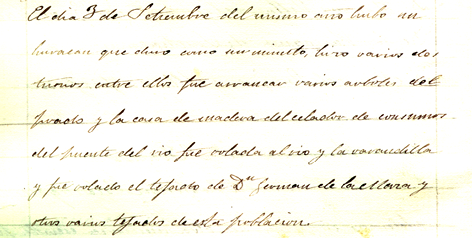 El dia 3 de Setiembre del mismo año hubo un
huracan que duro como un minuto, hizo varios des
trozos entre ellos fue arrancar varios arboles del
prado y la casa de madera del celador de consumos
del puente del rio fue volada al rio y la varandilla
y fue volado el tejado de Dn German de la Maza y
otros varios tejados de esta poblacion.